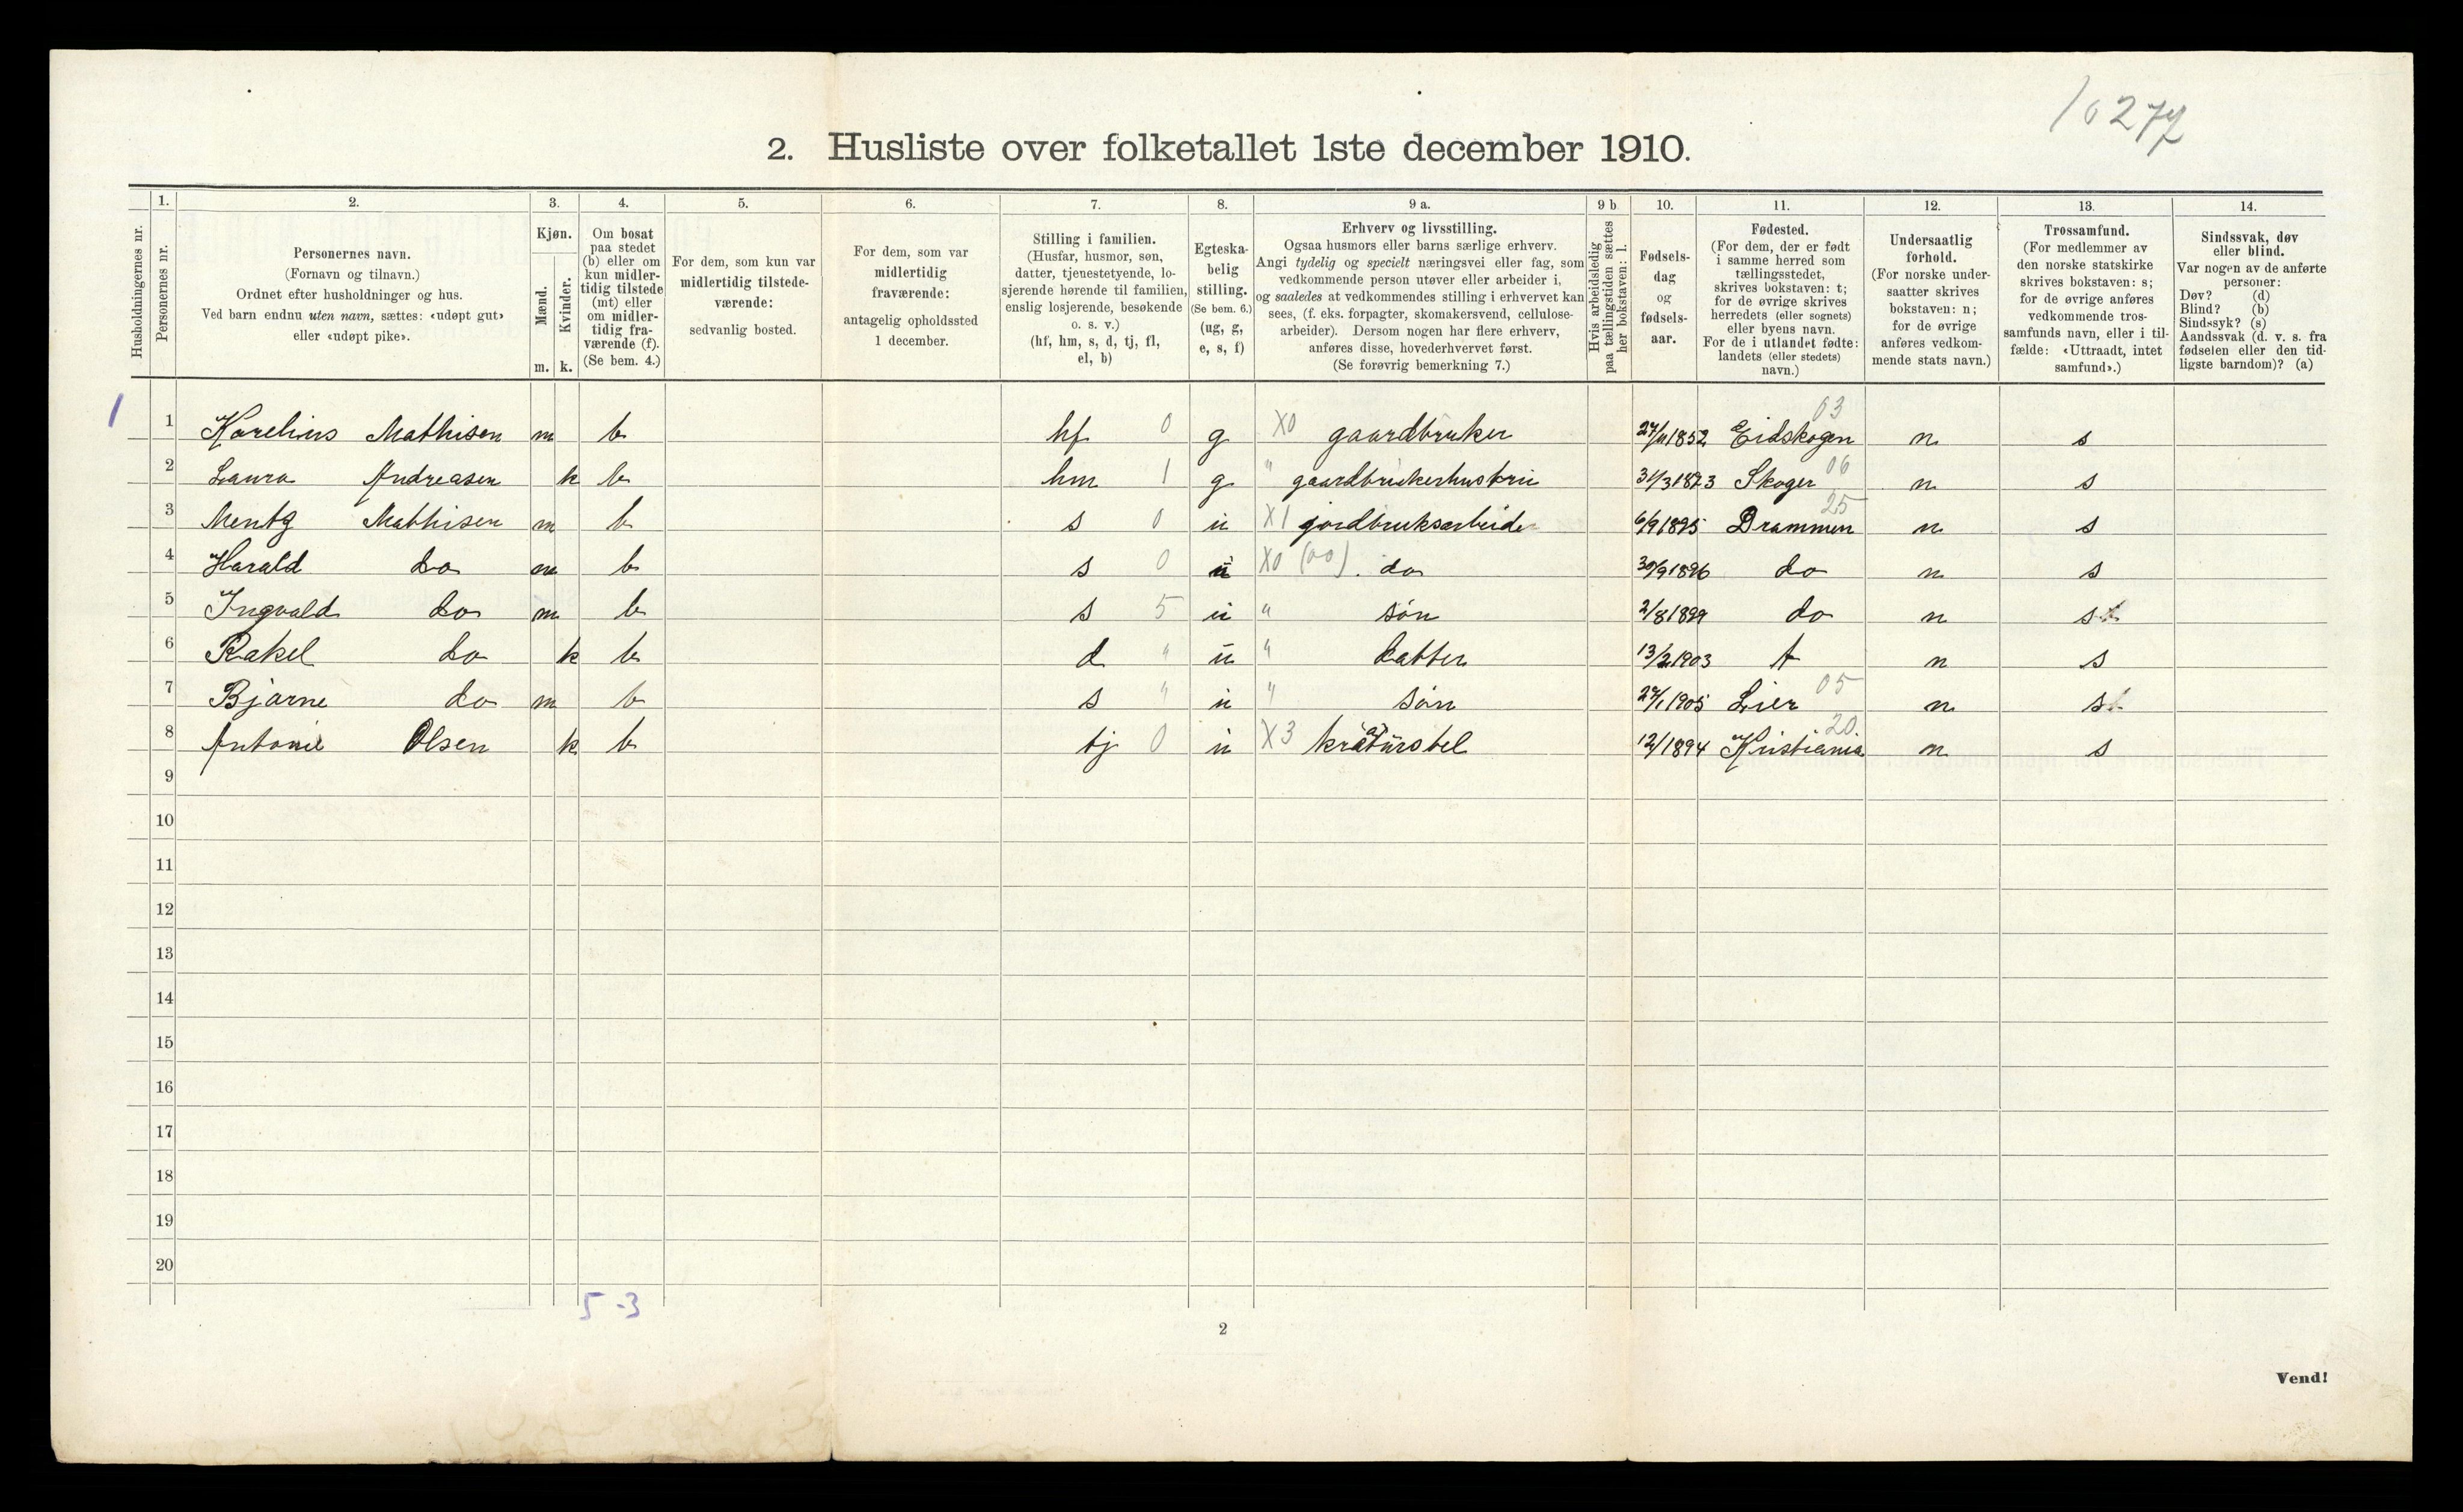 10277
2. Husliste over folketallet 1ste december 1910.
Husholdningernes nr.
1. Personernes nr.
2. Personernes navn. (Fornavn og tilnavn.) Ordnet efter husholdninger og hus. Ved barn endnu uten navn, sættes: «udøpt gut» eller «udøpt pike».
3. Kjøn. Mænd. m. Kvinder. k.
4. Om bosat paa stedet (b) eller om kun midlertidig tilstede (mt) eller om midlertidig fraværende (f). (Se bem. 4.)
5. For dem, som kun var midlertidig tilstedeværende: sedvanlig bosted.
6. For dem, som var midlertidig fraværende: antagelig opholdssted 1 december.
7. Stilling i familien. (Husfar, husmor, søn, datter, tjenestetyende, losjerende hørende til familien, enslig losjerende, besøkende o. s. v.) (hf, hm, s, d, tj, fl, el, b)
8. Egteskabelig stilling. (Se bem. 6.) (ug, g, e, s, f)
9 a. Erhverv og livsstilling. Ogsaa husmors eller barns særlige erhverv. Angi tydelig og specielt næringsvei eller fag, som vedkommende person utøver eller arbeider i, og saaledes at vedkommendes stilling i erhvervet kan sees, (f. eks. forpagter, skomakersvend, cellulosearbeider). Dersom nogen har flere erhverv, anføres disse, hovederhvervet først. (Se forøvrig bemerkning 7.)
9 b. Hvis arbeidsledig paa tællingstiden sættes her bokstaven: l.
10. Fødselsdag og fødselsaar.
11. Fødested. (For dem, der er født i samme herred som tællingsstedet, skrives bokstaven: t; for de øvrige skrives herredets (eller sognets) eller byens navn. For de i utlandet fødte: landets (eller stedets) navn.)
12. Undersaatlig forhold. (For norske undersaatter skrives bokstaven: n; for de øvrige anføres vedkommende stats navn.)
13. Trossamfund. (For medlemmer av den norske statskirke skrives bokstaven: s; for de øvrige anføres vedkommende trossamfunds navn, eller i tilfælde: «Uttraadt, intet samfund».)
14. Sindssvak, døv eller blind. Var nogen av de anførte personer: Døv? (d) Blind? (b) Sindssyk? (s) Aandssvak (d. v. s. fra fødselen eller den tidligste barndom)? (a)
1 1 Karelius Mathisen m b hf 0 g X0 gaardbruker 27/11 1852 Eidskogen 03 n s
2 Laura Andreasen k b hm 1 g " gaardbrukerhustru 31/3 1873 Skoger 06 n s
3 Mentz Mathisen m b s 0 u X1 jordbruksarbeider 6/9 1895 Drammen 25 n s
4 Harald do m b s 0 u X0 (00) do 30/9 1896 do n s
5 Ingvald do m b s 5 u " søn 2/8 1899 do n s
6 Rakel do k b d " u " datter 13/2 1903 t n s
7 Bjarne do m b s " u " søn 27/1 1905 Lier 05 n s
8 Antonie Olsen k b tj 0 u X3 kratürstel 12/1 1894 Kristiania 20 n s
9
10
11
12
13
14
15
16
17
18
19
20
5-3
2
Vend!